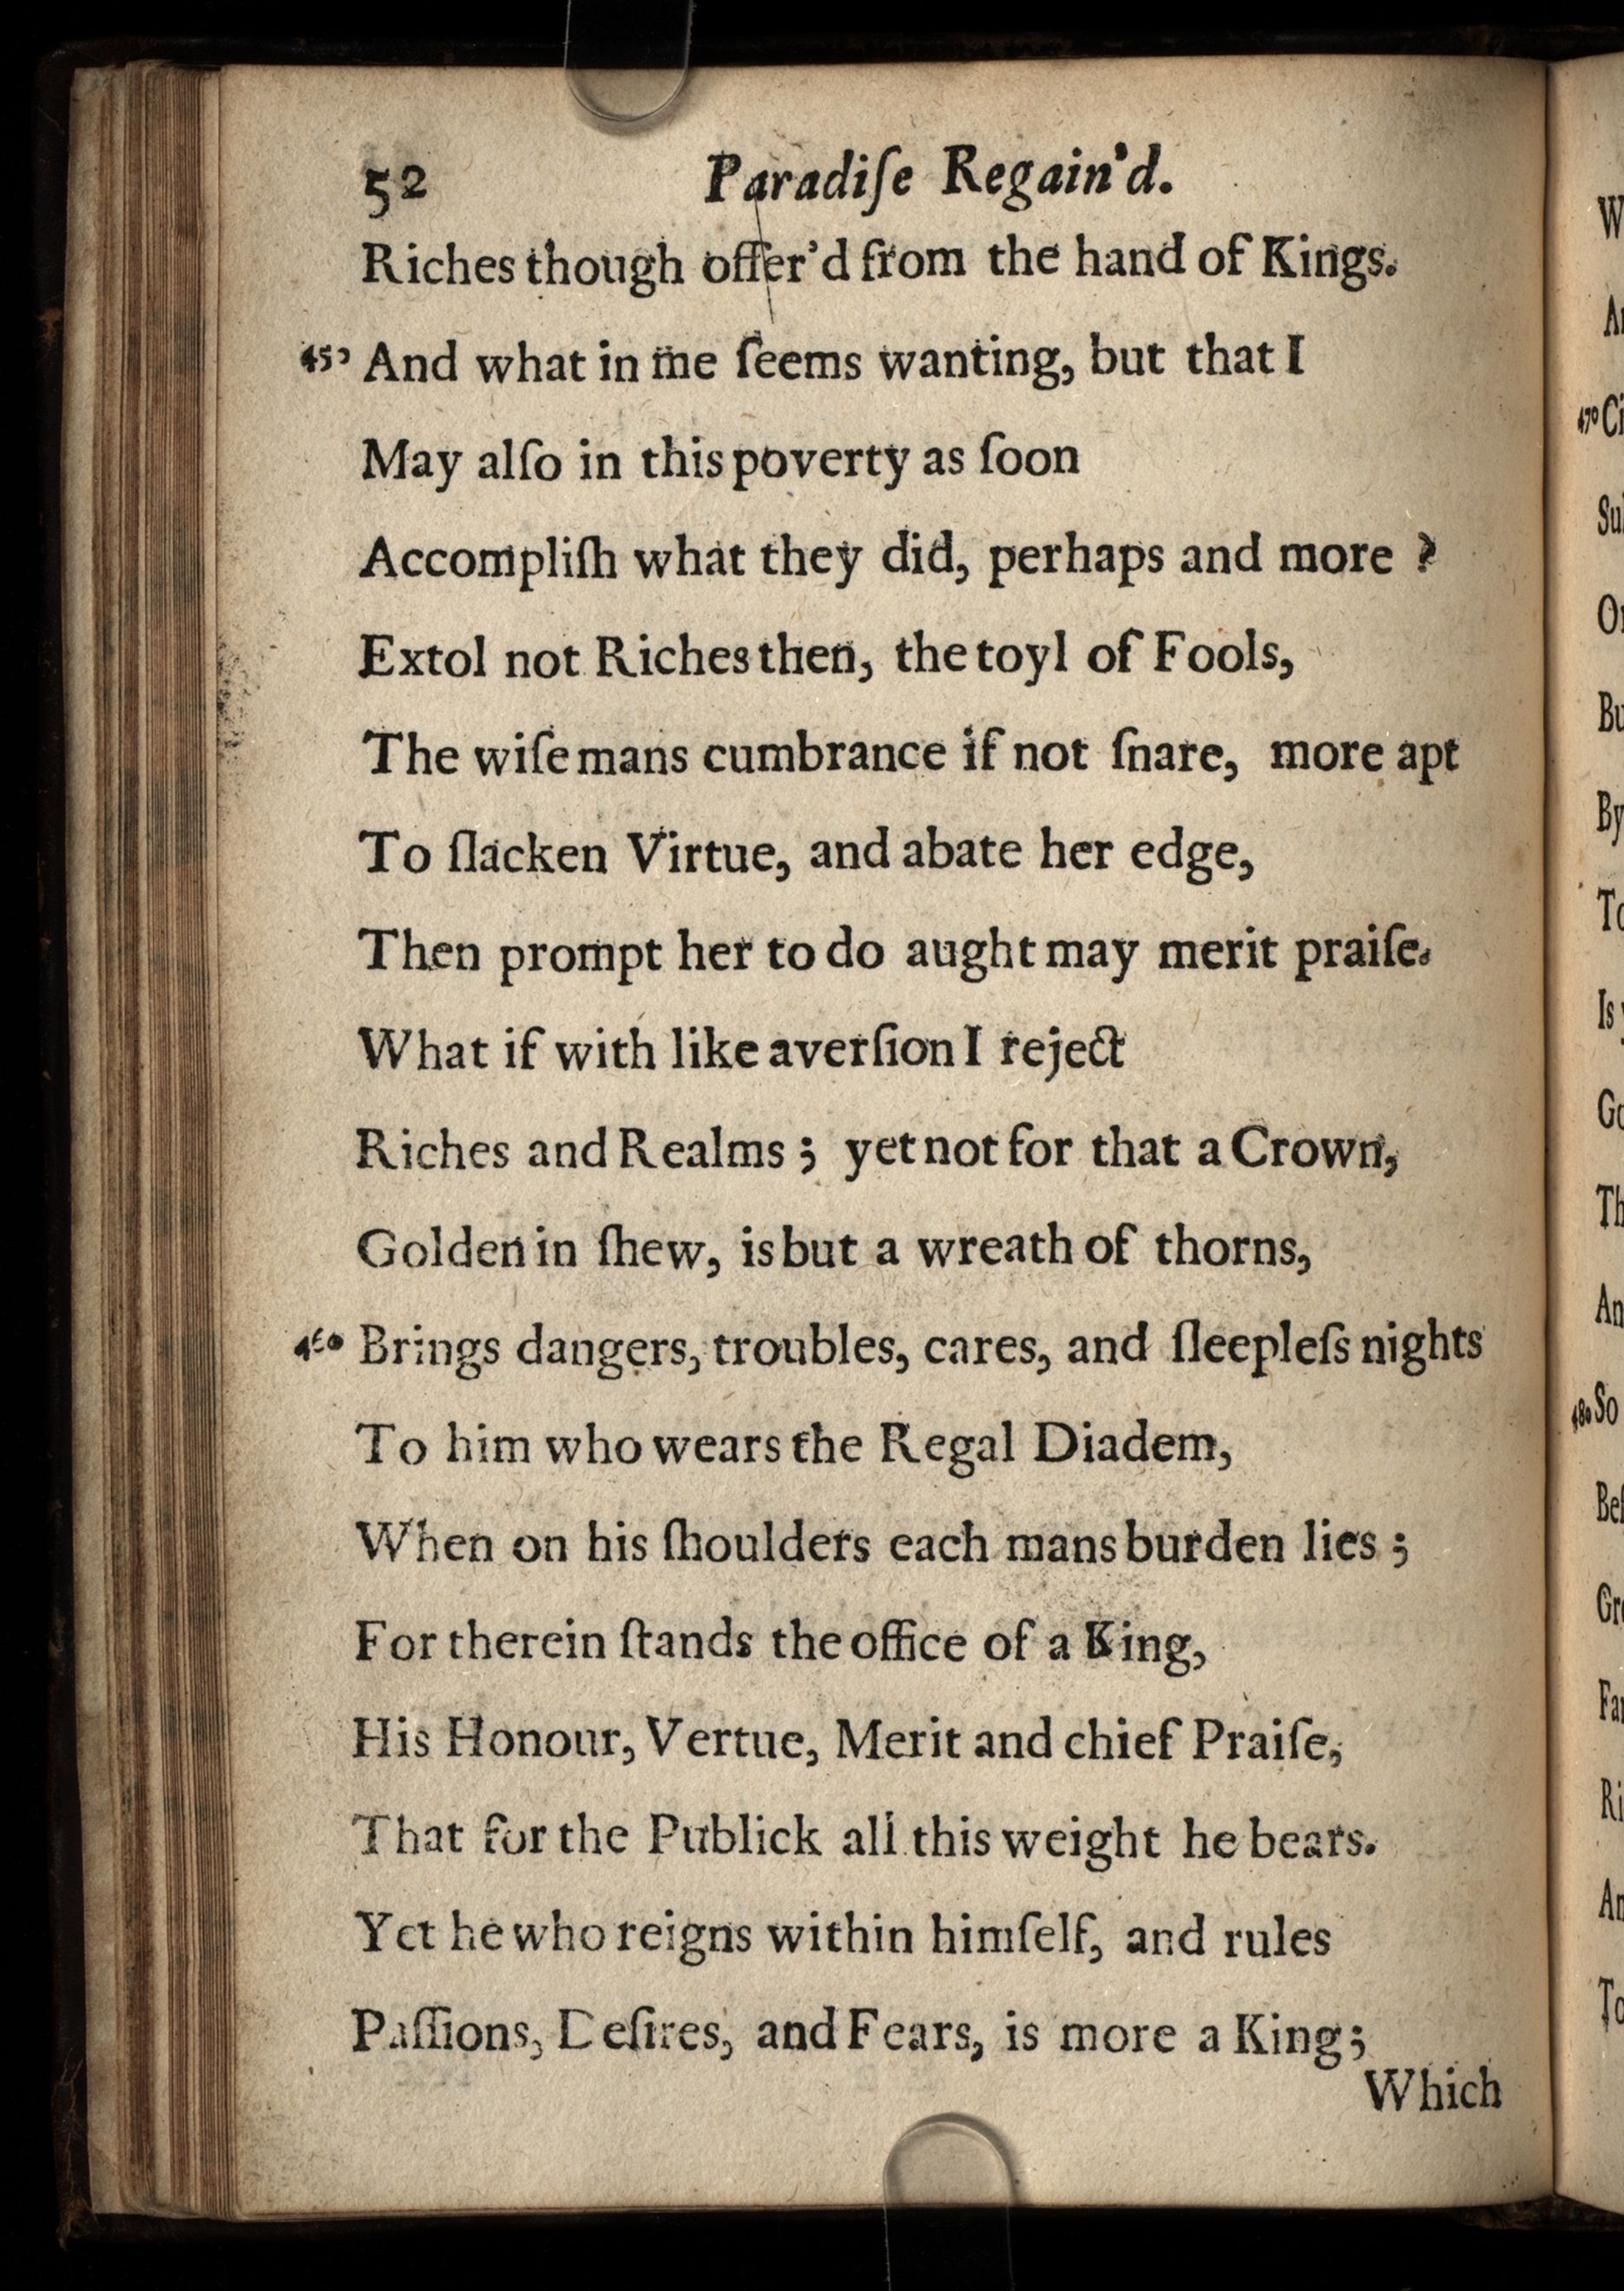 52 Paradiſe Regain'd.
Riches though offer'd from the hand of Kings.
450 And what in me ſeems wanting, but that I
May alſo in this poverty as ſoon
Accompliſh what they did, perhaps and more ?
Extol not Riches then, the toyl of Fools,
The wiſe mans cumbrance if not ſnare, more apt
To ſlacken Virtue, and abate her edge,
Then prompt her to do aught may merit praiſe.
What if with like averſion I reject
Riches and Realms ; yet not for that a Crown,
Golden in ſhew, is but a wreath of thorns,
460 Brings dangers, troubles, cares, and ſleepleſs nights
To him who wears the Regal Diadem,
When on his ſhoulders each mans burden lies ;
For therein ſtands the office of a King,
His Honour, Vertue, Merit and chief Praiſe,
That for the Publick all this weight he bears.
Yet he who reigns within himſelf, and rules
Paſſions, Deſires, and Fears, is more a King;
Which
470
480 So